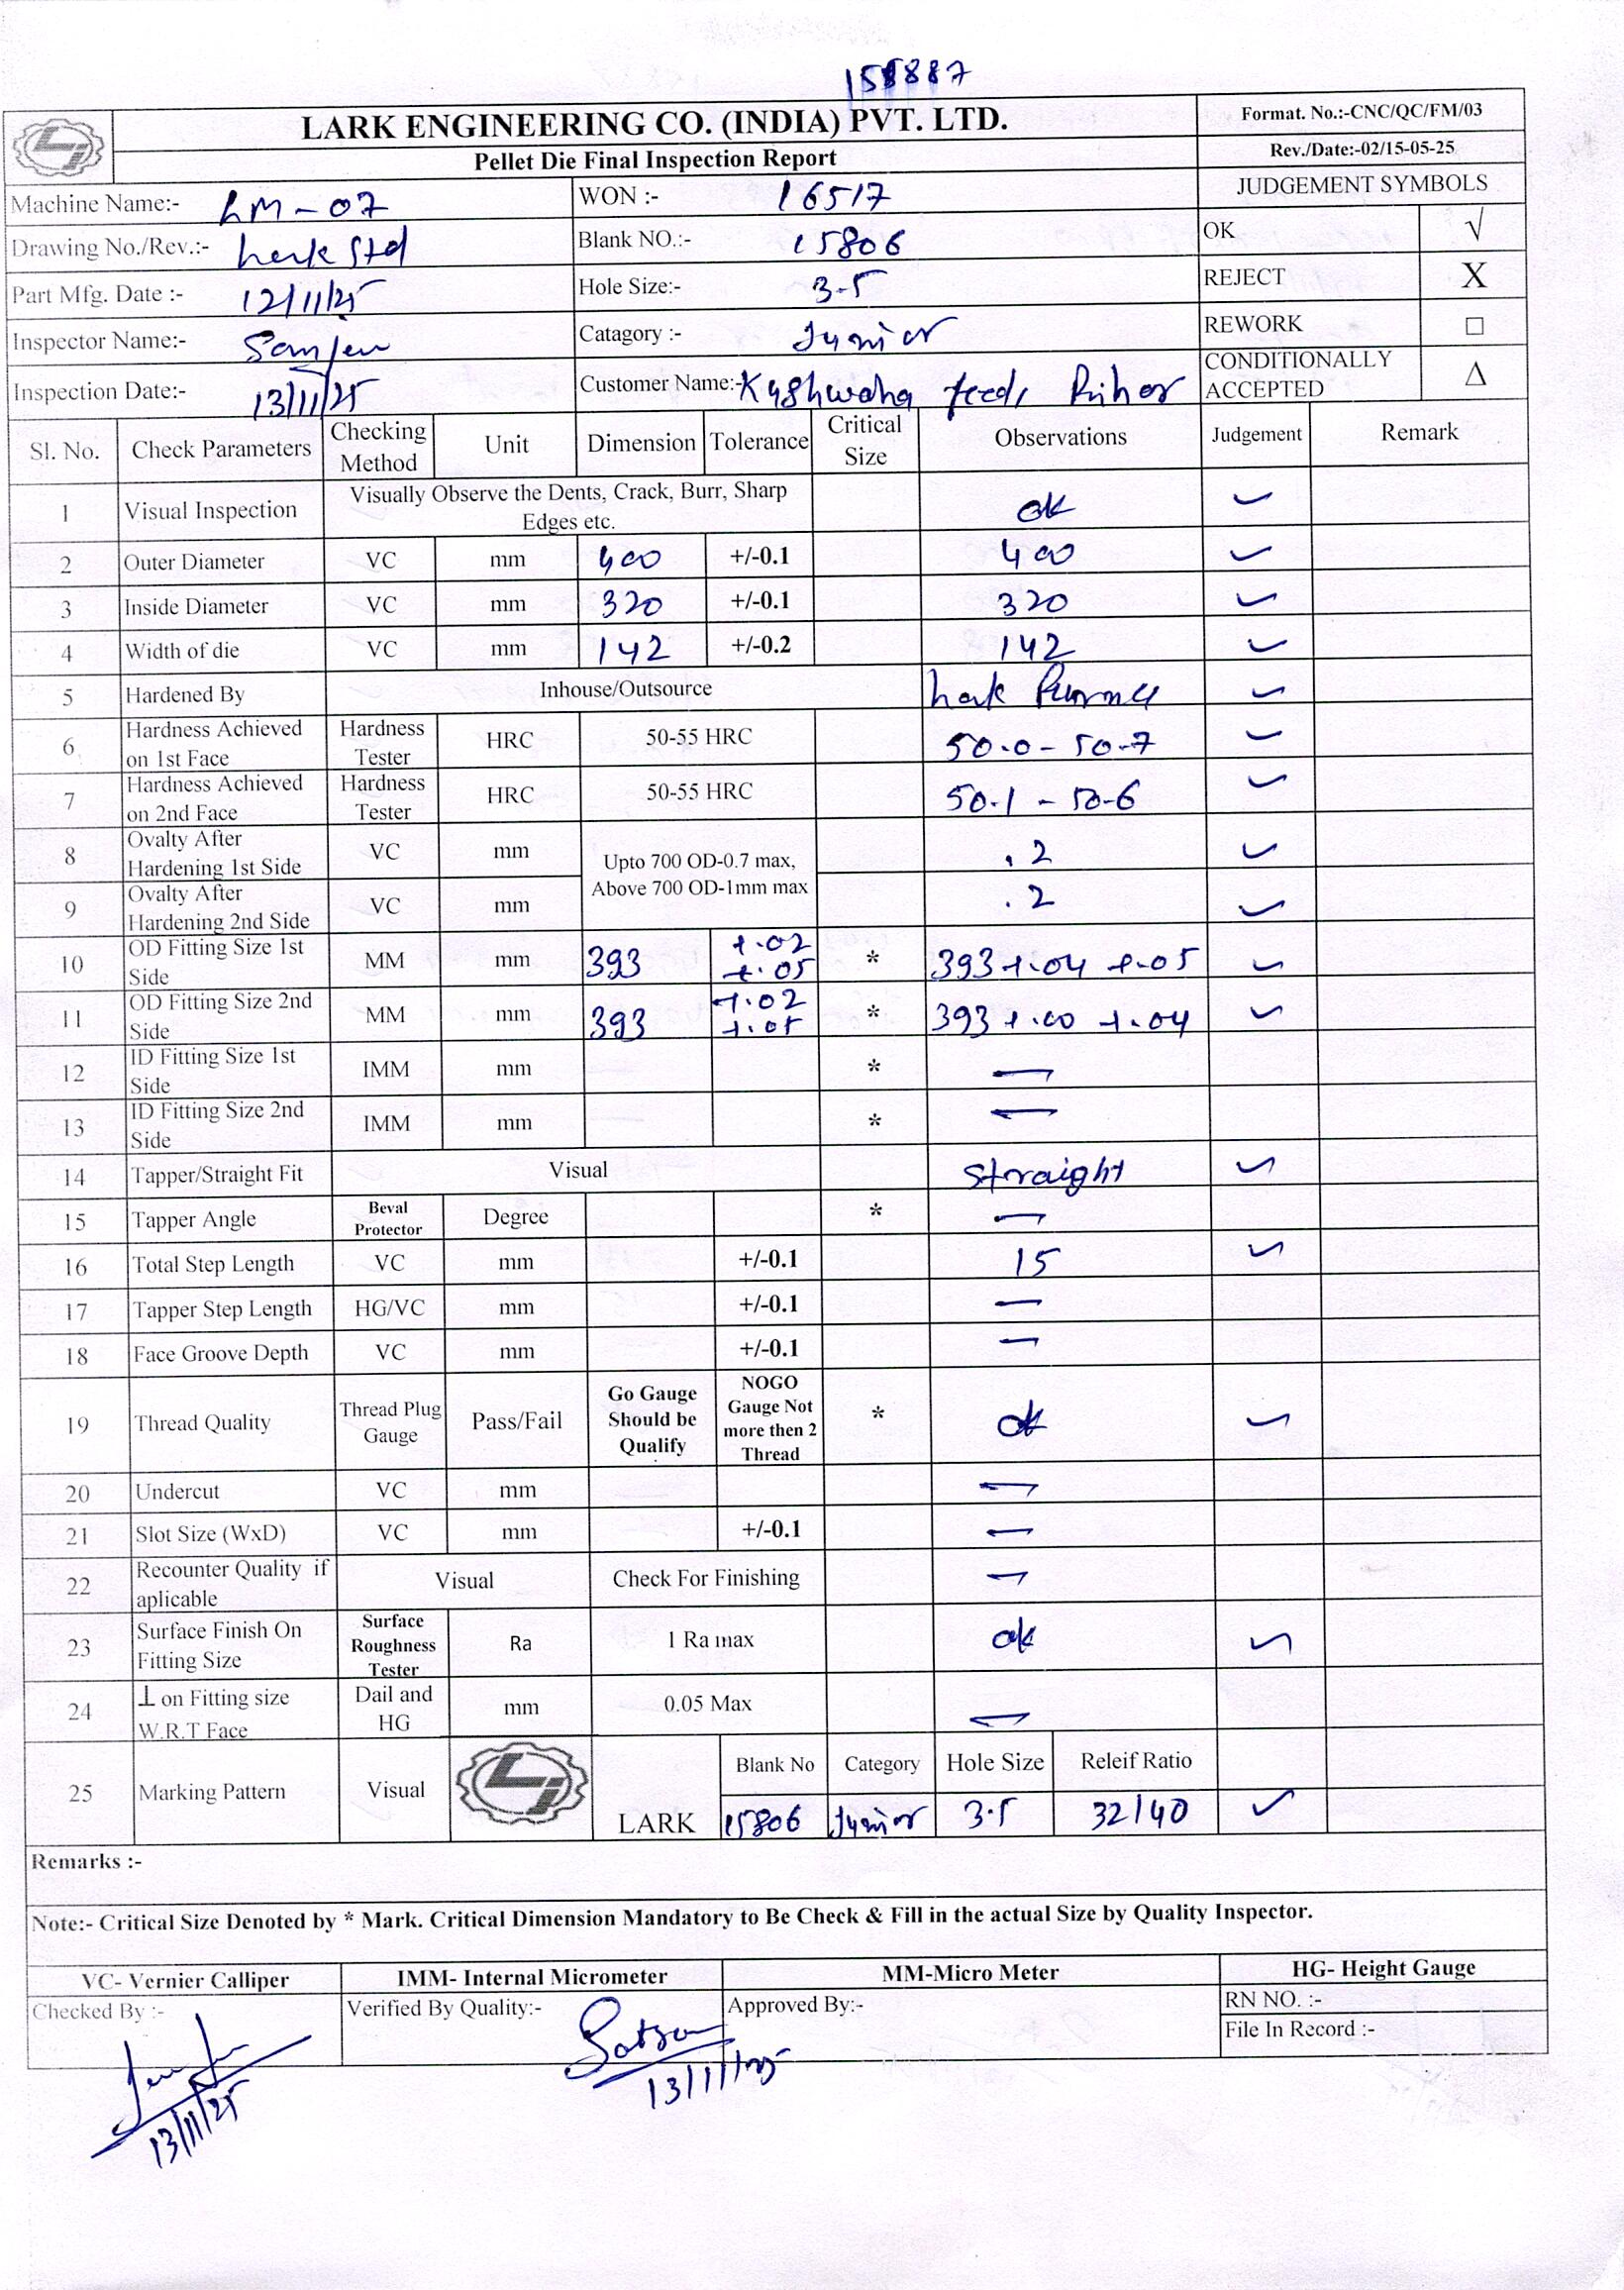 158887
LARK ENGINEERING CO. (INDIA) PVT. LTD.
Pellet Die Final Inspection Report
Format. No.:-CNC/QC/FM/03
Rev./Date:-02/15-05-25
Machine Name:- LM-07 WON :- 16517 JUDGEMENT SYMBOLS
Drawing No./Rev.:- Lark Std Blank NO.:- 15806 OK √
Part Mfg. Date :- 12/11/25 Hole Size:- 3.5 REJECT X
Inspector Name:- Catagory :- Junior REWORK □
Inspection Date:- 13/11/25 Customer Name:- Kushwaha feeds CONDITIONALLY ACCEPTED Δ
Sl. No. Check Parameters Checking Method Unit Dimension Tolerance Critical Size Observations Judgement Remark
1 Visual Inspection Visually Observe the Dents, Crack, Burr, Sharp Edges etc. ok ✓
2 Outer Diameter VC mm 400 +/-0.1 400 ✓
3 Inside Diameter VC mm 320 +/-0.1 320 ✓
4 Width of die VC mm 142 +/-0.2 142 ✓
5 Hardened By Inhouse/Outsource Lark ✓
6 Hardness Achieved on 1st Face Hardness Tester HRC 50-55 HRC 50.0-50.7 ✓
7 Hardness Achieved on 2nd Face Hardness Tester HRC 50-55 HRC 50.1-50.6 ✓
8 Ovalty After Hardening 1st Side VC mm Upto 700 OD-0.7 max, Above 700 OD-1mm max .2 ✓
9 Ovalty After Hardening 2nd Side VC mm .2 ✓
10 OD Fitting Size 1st Side MM mm 393 +.02 +.05 * 393 +.04 +.05 ✓
11 OD Fitting Size 2nd Side MM mm 393 +.02 +.05 * 393 +.00 +.04 ✓
12 ID Fitting Size 1st Side IMM mm * —
13 ID Fitting Size 2nd Side IMM mm * —
14 Tapper/Straight Fit Visual Straight ✓
15 Tapper Angle Beval Protector Degree * —
16 Total Step Length VC mm +/-0.1 15 ✓
17 Tapper Step Length HG/VC mm +/-0.1 —
18 Face Groove Depth VC mm +/-0.1 —
19 Thread Quality Thread Plug Gauge Pass/Fail Go Gauge Should be Qualify NOGO Gauge Not more then 2 Thread * ok ✓
20 Undercut VC mm —
21 Slot Size (WxD) VC mm +/-0.1 —
22 Recounter Quality if aplicable Visual Check For Finishing —
23 Surface Finish On Fitting Size Surface Roughness Tester Ra 1 Ra max ok ✓
24 ⊥ on Fitting size W.R.T Face Dail and HG mm 0.05 Max —
25 Marking Pattern Visual LARK Blank No Category Hole Size Releif Ratio
15806 Junior 3.5 32/40 ✓
Remarks :-
Note:- Critical Size Denoted by * Mark. Critical Dimension Mandatory to Be Check & Fill in the actual Size by Quality Inspector.
VC- Vernier Calliper IMM- Internal Micrometer MM-Micro Meter HG- Height Gauge
Checked By :- Verified By Quality:- Approved By:- RN NO. :-
File In Record :-
13/11/25
13/11/25